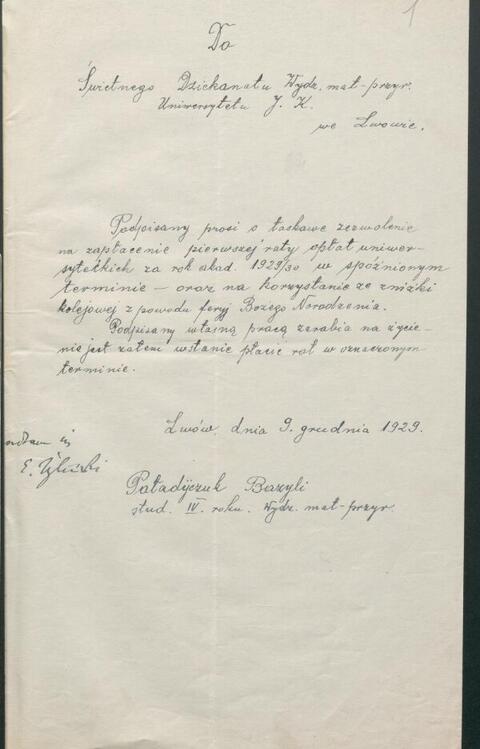 1
Do
Świetnego Dziekanatu Wydz. mat-przyr.
Uniwersytetu J. K.
we Lwowie.
Podpisany prosi o łaskawe zezwolenie
na zapłacenie pierwszej raty opłat uniwer-
syteckich za rok akad. 1929/30 w spóźnionym
terminie – oraz na korzystanie ze zniżki
kolejowej z powodu feryj Bożego Narodzenia.
Podpisany własną pracą zarabia na życie –
nie jest zatem wstanie płacić rat w oznaczonym
terminie.
Lwów, dnia 9. grudnia 1929.
E. Żyliński
Paładijczuk Bazyli
stud. IV. roku. Wydz. mat-przyr.